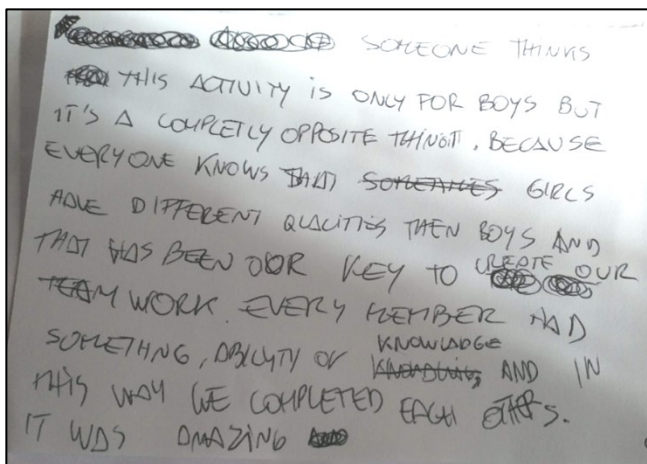 SOMEONE THINKS
THIS ACTIVITY IS ONLY FOR BOYS BUT
IT'S A COMPLETLY OPPOSITE THING, BECAUSE
EVERYONE KNOWS THAT SOMETIMES GIRLS
HAVE DIFFERENT QUALITIES THEN BOYS AND
THAT HAS BEEN OUR KEY TO CREATE OUR
TEAM WORK. EVERY MEMBER HAD
SOMETHNG, ABILITY OR KNOWLADGE AND IN
THIS WAY WE COMPLETED EACH OTHERS.
IT WAS AMAZING